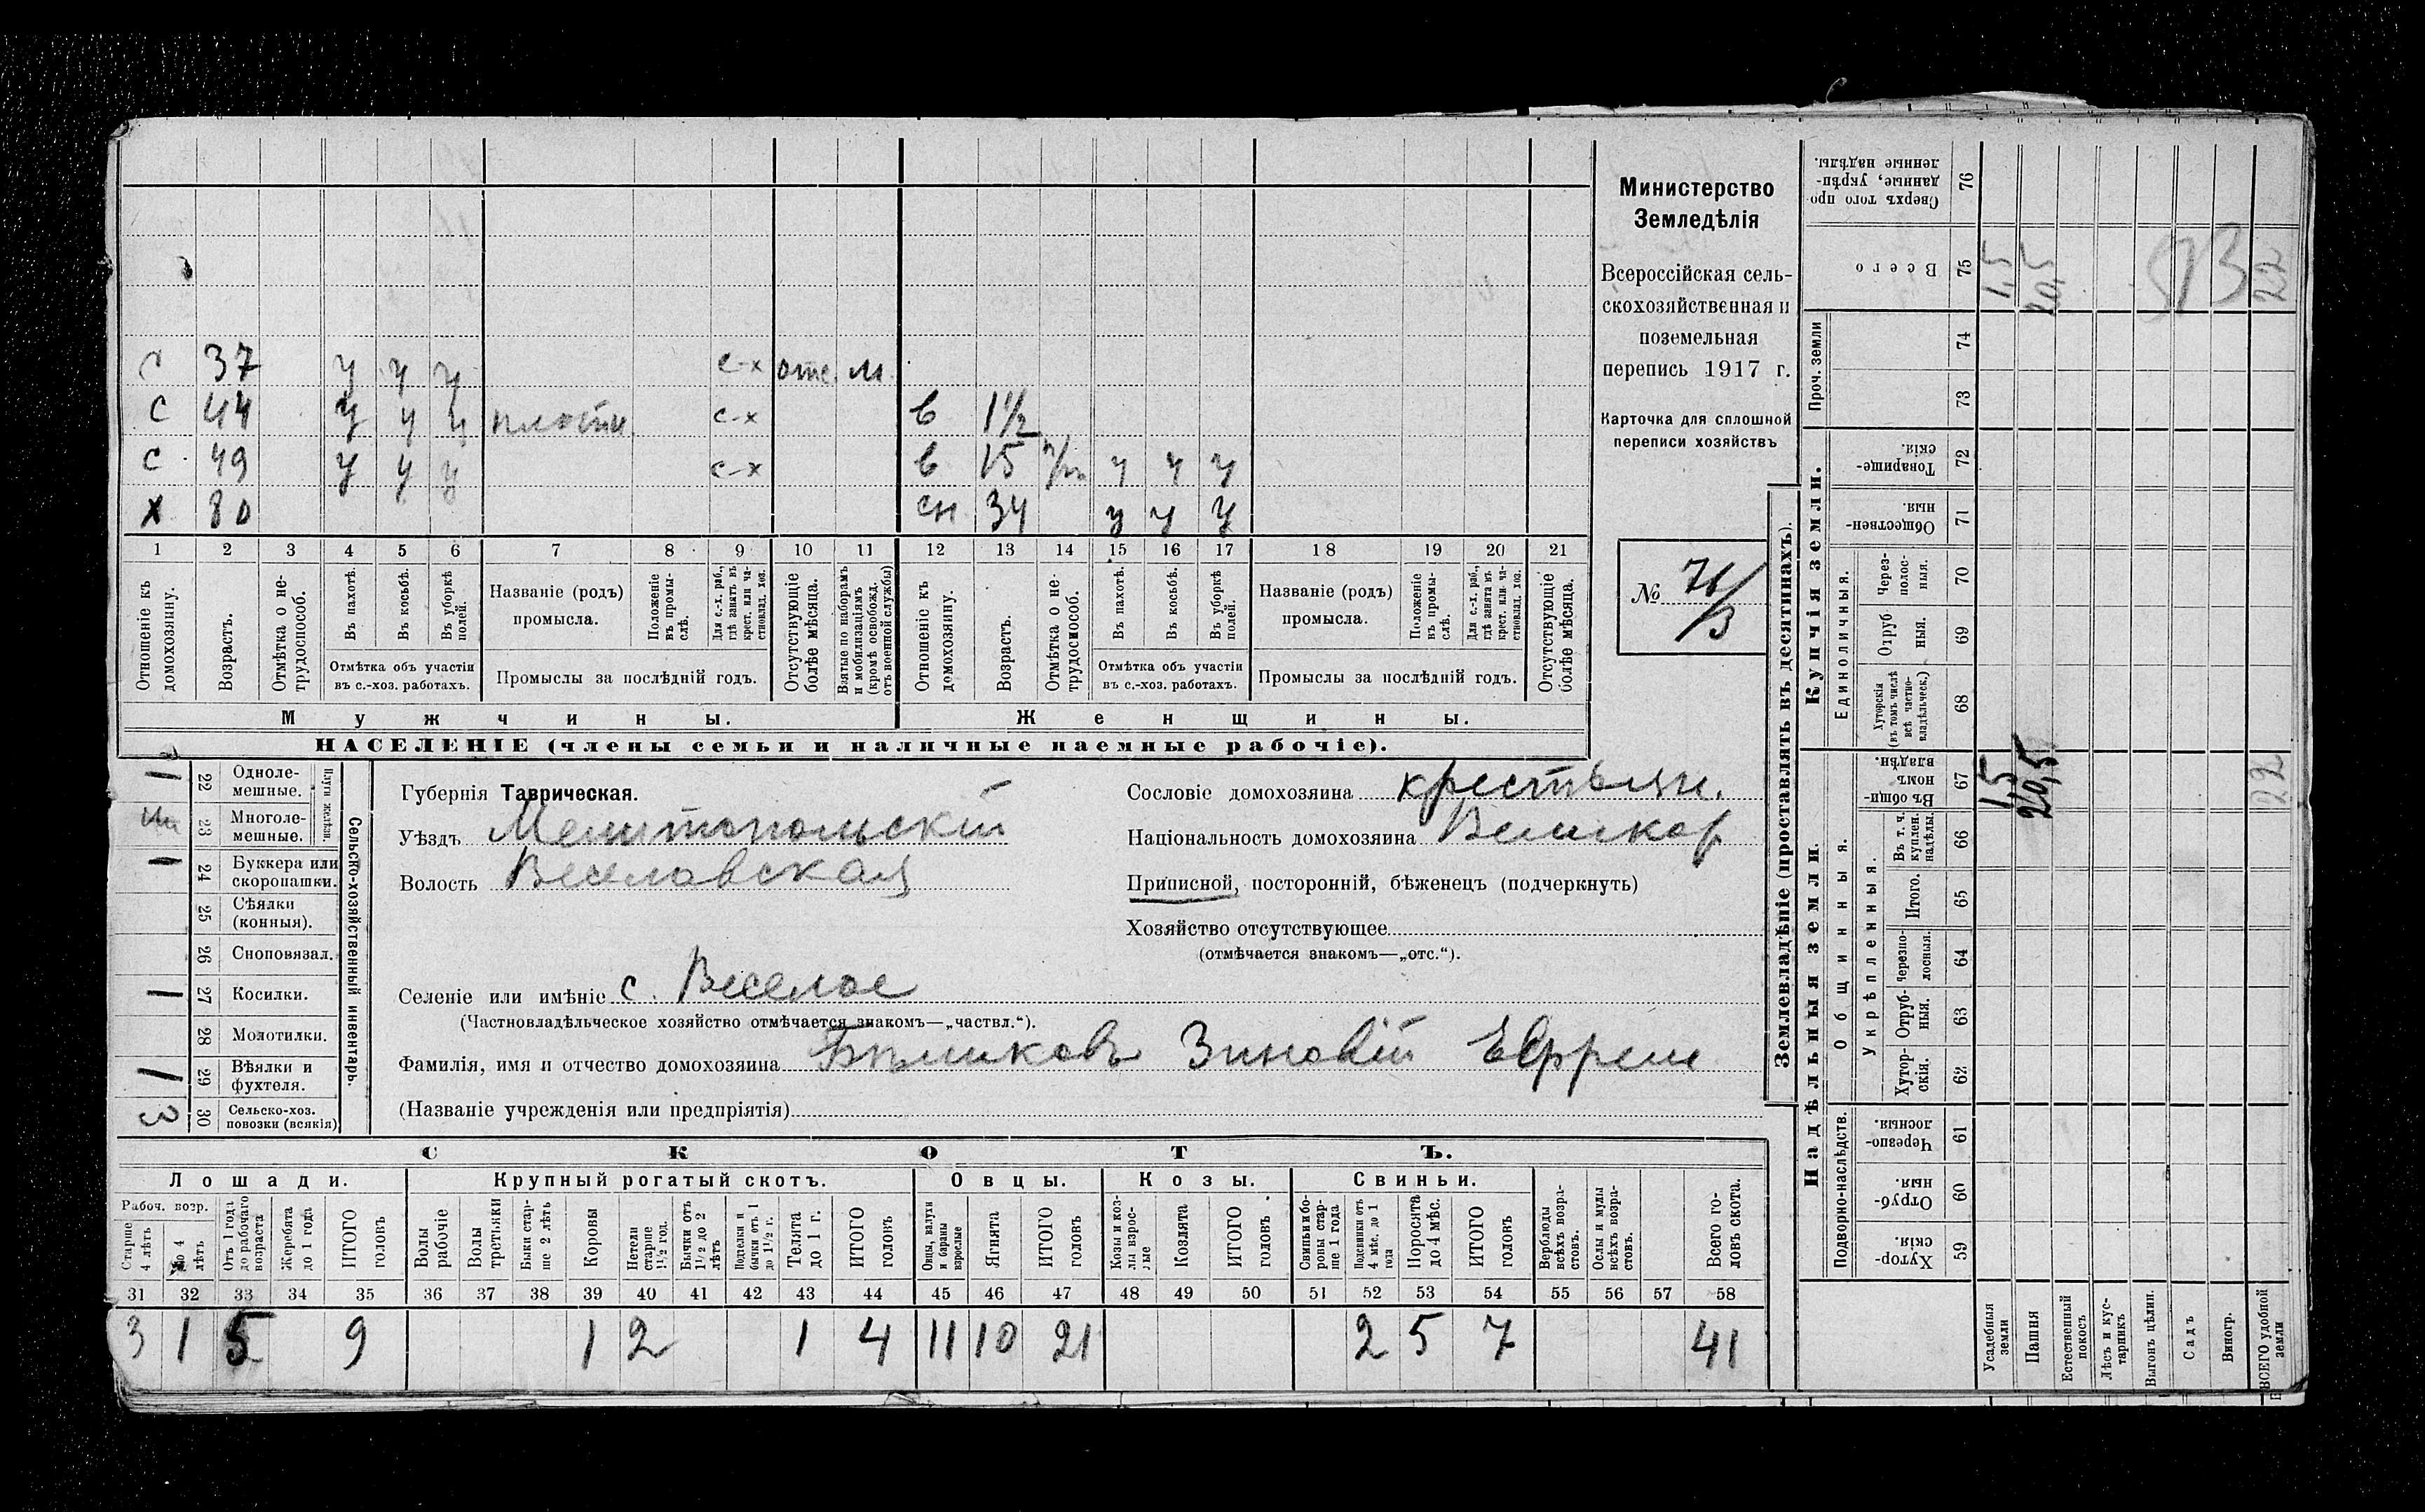 Министерство
Земледѣлія
Всероссійская сель-
скохозяйственная и
поземельная
перепись 1917 г.
Карточка для сплошной
переписи хозяйствъ
№ 
с 37 у у у с-х отс. м.
с 44 у у у плотн с-х в 1½
с 49 у у у с-х в 15 у у у
х 80 сн 34 у у у
1 2 3 4 5 6 7 8 9 10 11 12 13 14 15 16 17 18 19 20 21
Отношеніе къ домохозяину.
Возрастъ.
Отмѣтка о не-трудоспособ.
Въ пахотѣ.
Въ косьбѣ.
Въ уборкѣ полей.
Отмѣтка объ участіи
въ с.-хоз. работахъ.
Названіе (родъ)
промысла.
Положеніе въ промы-слѣ.
Для с.-х. раб., гдѣ занятъ въ крест. или ча-стновлад. хоз.
Промыслы за послѣдній годъ.
Отсутствующіе болѣе мѣсяца.
Взятые по наборамъ и мобилизаціямъ (кромѣ освобожд. отъ военной службы)
Отношеніе къ домохозяину.
Возрастъ.
Отмѣтка о не-трудоспособ.
Въ пахотѣ.
Въ косьбѣ.
Въ уборкѣ полей.
Отмѣтка объ участіи
въ с.-хоз. работахъ.
Названіе (родъ)
промысла.
Положеніе въ промы-слѣ.
Для с.-х. раб., гдѣ занята въ крест. или ча-стновлад. хоз.
Промыслы за послѣдній годъ.
Отсутствующіе болѣе мѣсяца.
Мужчины. Женщины.
НАСЕЛЕНІЕ (члены семьи и наличные наемные рабочіе).
Сельско-хозяйственный инвентарь.
22 Однолемешные. 1
23 Многолемешные.
24 Буккера или скоропашки. 1
25 Сѣялки (конныя).
26 Сноповязал.
27 Косилки. 1
28 Молотилки.
29 Вѣялки и фухтеля. 1
30 Сельско-хоз. повозки (всякія) 3
Губернія Таврическая.
Уѣздъ Мелитопольскій
Волость Веселовская
Селеніе или имѣніе с. Веселое
(Частновладѣльческое хозяйство отмѣчается знакомъ—„частвл.“).
Фамилія, имя и отчество домохозяина Бѣликовъ Зиновій Ефрем
(Названіе учрежденія или предпріятія)
Сословіе домохозяина крестьян.
Національность домохозяина Великор
Приписной, посторонній, бѣженецъ (подчеркнуть)
Хозяйство отсутствующее
(отмѣчается знакомъ—„отс.“).
СКОТЪ.
Лошади. Крупный рогатый скотъ. Овцы. Козы. Свиньи.
Рабоч. возр.
Старше 4 лѣтъ
До 4 лѣтъ
Отъ 1 года до рабочаго возраста
Жеребята до 1 года
ИТОГО головъ
Волы рабочіе
Волы третьяки
Быки старше 2 лѣтъ
Коровы
Нетели старше 1½ год.
Бычки отъ 1½ до 2 лѣтъ
Телята до 1 г.
ИТОГО головъ
Овцы, валухи и бараны взрослые
Ягнята
ИТОГО головъ
Козы и козлы взрослые
Козлята
ИТОГО головъ
Свиньи и бороны старше 1 года
Подсвинки отъ 4 мѣс. до 1 года
Поросята до 4 мѣс.
ИТОГО головъ
Верблюды всѣхъ возрастовъ.
Ослы и мулы всѣхъ возрастовъ.
Всего головъ скота.
31 32 33 34 35 36 37 38 39 40 41 42 43 44 45 46 47 48 49 50 51 52 53 54 55 56 57 58
3 1 5 9 1 2 1 4 11 10 21 2 5 7 41
Землевладѣніе (проставлять въ десятинахъ).
Купчія земли.
Надѣльныя земли.
Сверхъ того проданные, укрѣпленные надѣлы. 76
Всего 75 1,5 20,5 22
93
Проч. земли 74 73
Товарищескія. 72
Общественныя. 71
Единоличныя.
Черезполосныя. 70
Отрубныя. 69
Хуторскія (въ томъ числѣ всѣ частновладѣльческ.) 68
Въ общинномъ владѣн. 67 1,5 20,5 22
Общинныя.
Укрѣпленныя.
Въ т. ч. куплен. надѣлы. 66
Итого. 65
Черезполосныя. 64
Отрубныя. 63
Хуторскія. 62
Подворно-наслѣдств.
Черезполосныя. 61
Отрубныя. 60
Хуторскія. 59
Усадебныя земли
Пашня
Естественный покосъ
Лѣсъ и кустарникъ
Выгонъ цѣлин.
Садъ
Виногр.
ВСЕГО удобной земли